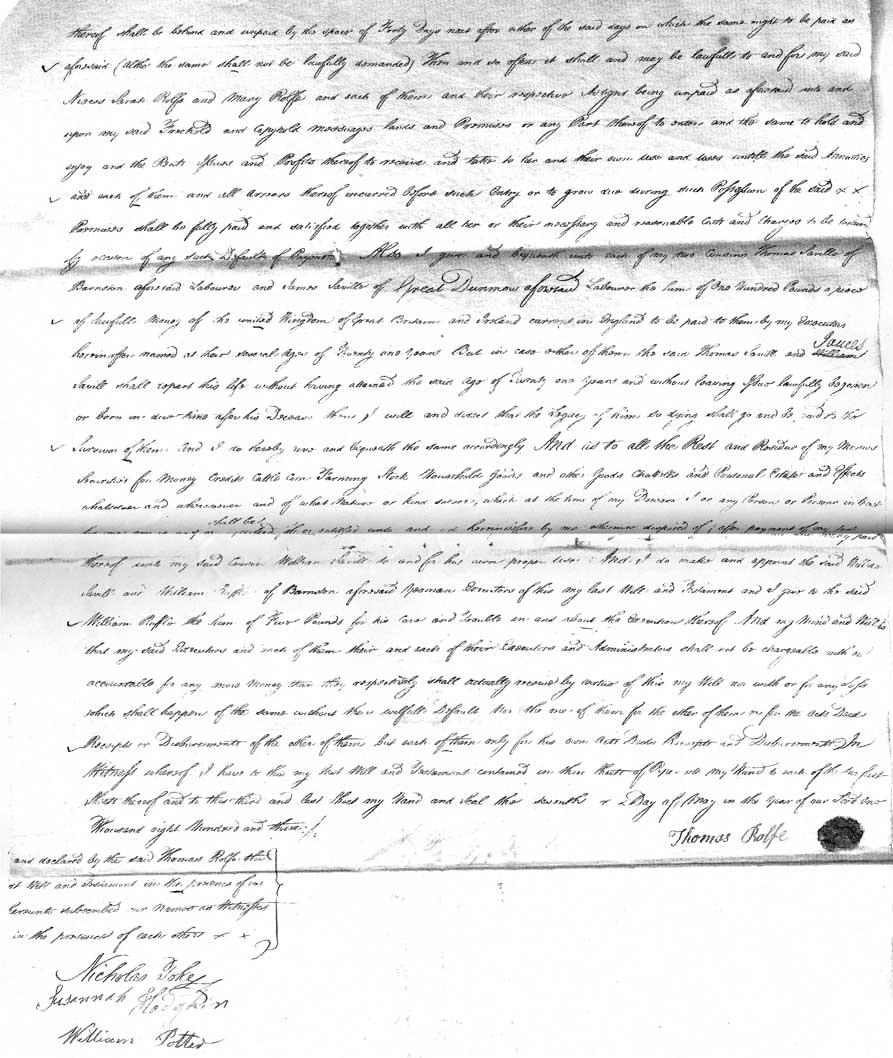 thereof shall be behind and unpaid by the space of Forty Days next after either of the said days on which the same ought to be paid as
aforesaid (altho the same shall not be lawfully demanded) Then and so often it shall and may be lawfull to and for my said
Nieces Sarah Rolfe and Mary Rolfe and each of them and their respective Assigns being unpaid as aforesaid into and
upon my said Freehold and Copyhold Messuages lands and Premises or any Part thereof to enter and the same to hold and
enjoy and the Rents Issues and Profits thereof to receive and take to her and their own use and uses untill the said Annuities
and each of them and all Arrears thereof incurred before such Entry or to grow due during such Possession of the said x x
Premises shall be fully paid and satisfied together with all her or their necessary and reasonable Costs and Charges to be incurred
by reason of any such Default of Payment Also I give and bequeath unto each of my two Cousins Thomas Savill of
Barnston aforesaid Labourer and James Saville of Great Dunmow aforesaid Labourer the sum of One Hundred Pounds a piece
of lawfull Money of the united Kingdom of Great Britain and Ireland current in England to be paid to them by my Executors
hereinafter named at their several Ages of Twenty one years But in case either of them the said Thomas Savill and James William
Savill shall depart this life without having attained the said Age of Twenty one Years and without leaving Issue lawfully begotten
or born in due time after his Decease then I will and direct that the Legacy of him so dying shall go and be paid to the
Survivor of them And I do hereby give and bequeath the same accordingly And as to all the Rest and Residue of my Monies
Securities for Money Credits Cattle Corn Farming Stock Household Goods and other Goods Chattels and Personal Estate and Effects
whatsoever and wheresoever and of what Nature or kind soever which at the time of my Decease I or any Person or Persons in trust
shall be and not hereinbefore by me otherwise disposed of after payment of my
thereof unto my said Cousin William Savill to and for his own proper use And I do make and appoint the said William
Savill and William Ruffle of Barnston aforesaid Yeoman Executors of this my last Will and Testament and I give to the said
William Ruffle the sum of Five Pounds for his Care and Trouble in and about the Execution thereof And my Mind and Will is
that my said Executors and each of them their and each of their Executors and Administrators shall not be chargeable with or
accountable for any more Money than they respectively shall actually receive by virtue of this my Will nor with or for any Loss
which shall happen of the same without their wilfull Default Nor the one of them for the other of them or for the Acts Deeds
Receipts or Disbursements of the other of them but each of them only for his own Acts Deeds Receipts and Disbursements In
Witness whereof I have to this my last Will and Testament contained in three Sheets of Paper set my Hand to each of the two first
Sheets thereof and to this third and last Sheet my Hand and Seal the seventh Day of May in the Year of our Lord One
Thousand eight Hundred and three
Thomas Rolfe
and declared by the said Thomas Rolfe the
st Will and Testament in the presence of us
hereunto subscribed our Names as Witnesses
in the presence of each other x x
Nicholas Toke
Susannah Hodgkin
William Potter